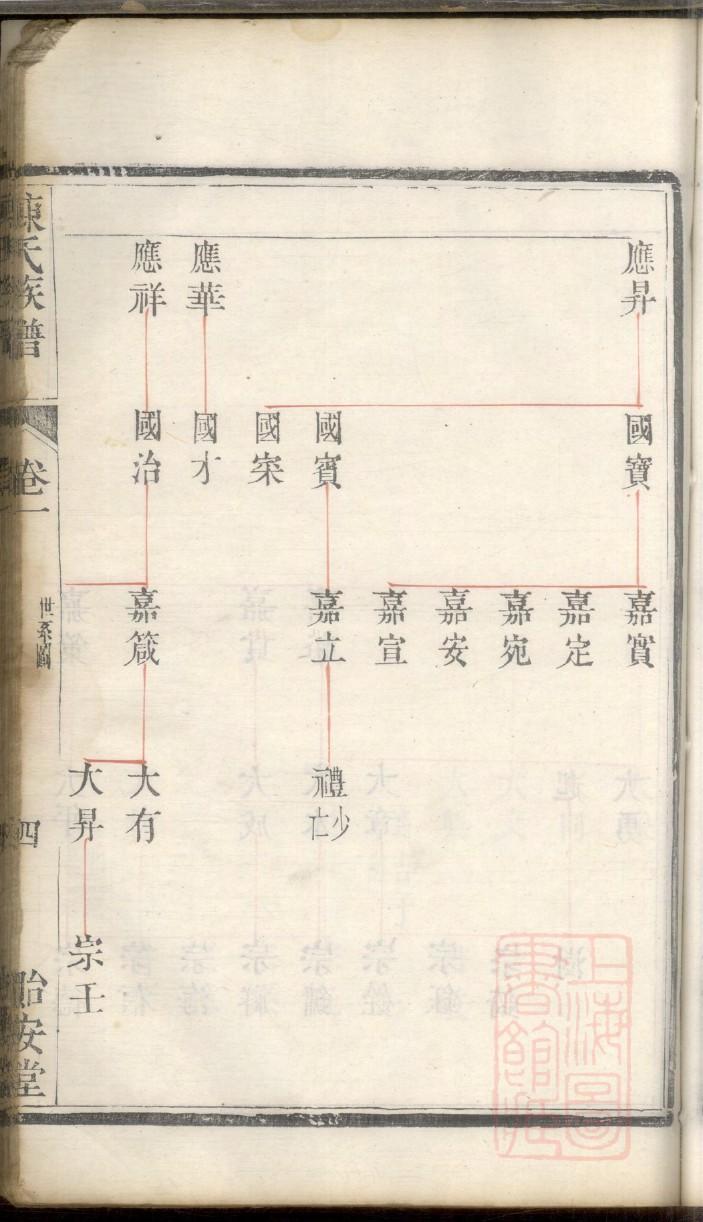 應昇
應華
應祥
國寶
國賓
國寀
國才
國治
嘉實
嘉定
嘉宛
嘉安
嘉宣
嘉立
嘉箴
禮少亡
大有
大昇
宗壬
陳氏族譜
卷一
世系圖
四
貽安堂
上海圖
書館藏